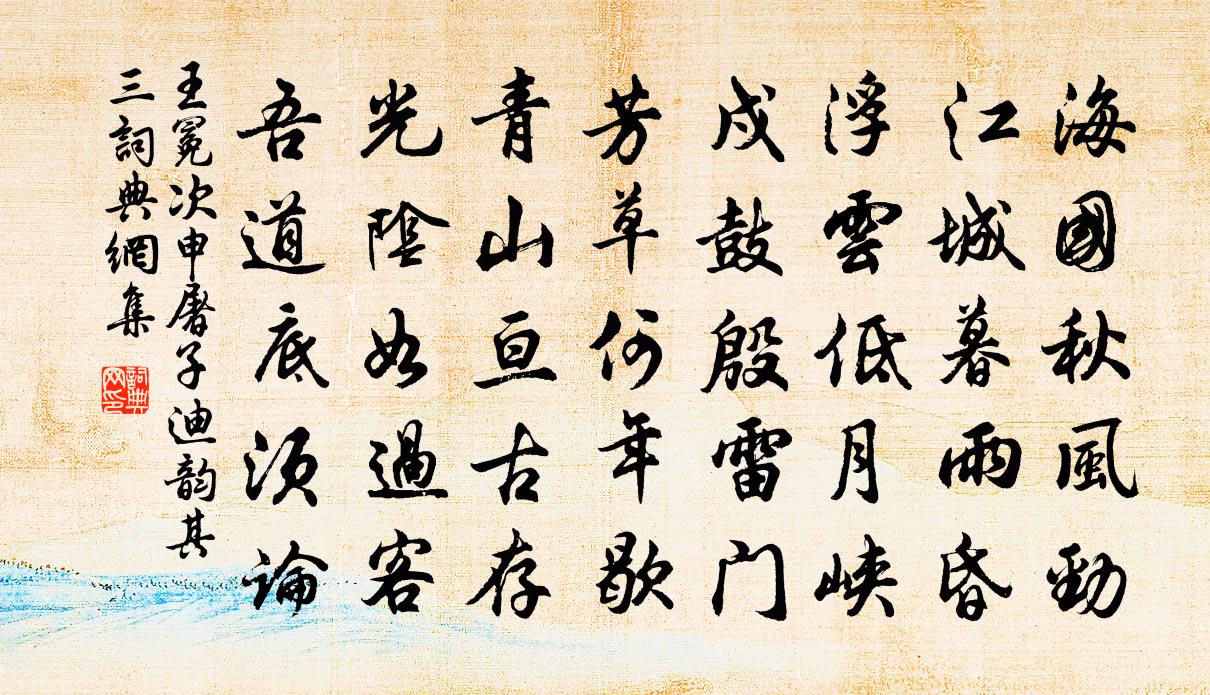 海國秋風勁
江城暮雨昏
浮雲低月峽
戍鼓殷雷門
芳草何年歇
青山亘古存
光陰如過客
吾道底須論
王冕次申屠子迪韵其
三詞典網集
詞典网印